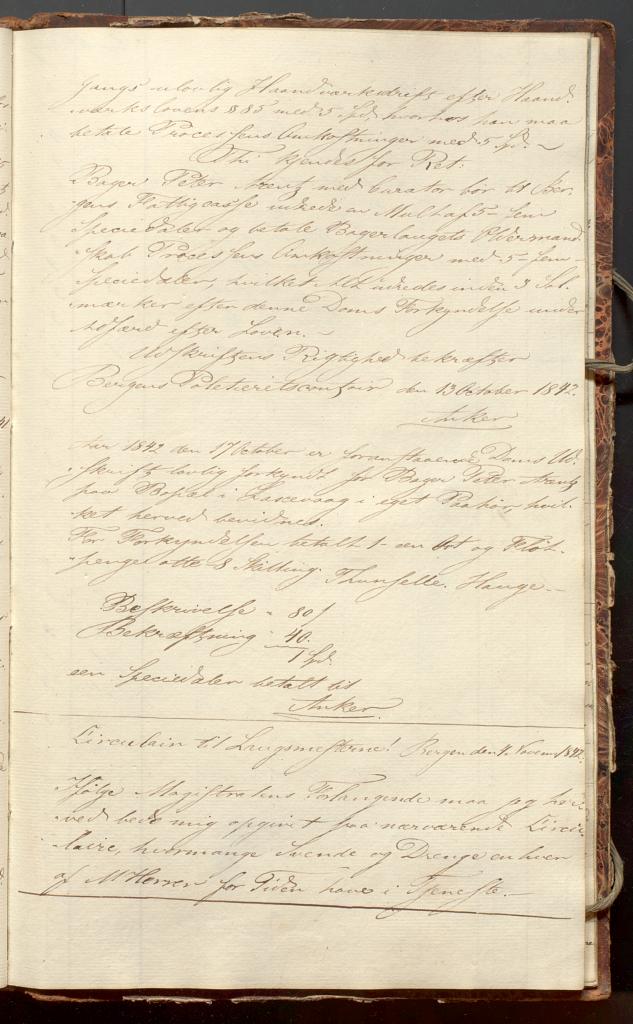 gangs ulovlig Haandværksdrift efter Haand-
værkslovens § 85 med 5 Spd, hvorhos han maa
betale Processens Omkostninger med 5 Spd. –
Thi kjendes for Ret:
Bager Peter Arentz med Curator bør til Ber-
gens Fattigcasse udrede en Mulkt af 5 – fem
Speciedaler og betale Bagerlaugets Oldermand-
skab Processens Omkostninger med 5 – fem –
Speciedaler, hvilket Alt udredes inden 3 Sol-
mærker efter denne Doms Forkyndelse under
Adfærd efter Loven. –
Udskriftens Rigtighed bekræfter
Bergens Politieretscontoir den 13 October 1842.
Anker
Aar 1842 den 17 October er foranstaaende Doms Ud-
skrift lovlig forkyndt for Bager Peter Arentz
paa Bopæl i Laxevaag i eget Paahør, hvil-
ket herved bevidnes.
For Forkyndelsen betalt 1 – en Ort og Flot-
penge otte 8 Skilling. Thunselle. Hauge –
Beskrivelse " 80 s
Bekræftning " 40.
1 Spd.
een Speciedaler betalt til
Anker.
Circulair til Laugsmesterne! Bergen den 4. Novem. 1842.
Ifølge Magistratens Forlangende maa jeg her-
ved bede mig opgivet paa nærværende Circu-
laire, hvormange Svende og Drenge enhver
af M Herrer for Tiden have i Tjeneste.